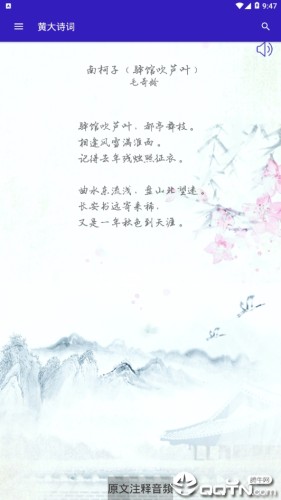 9:47
黄大诗词
南柯子（驿馆吹芦叶）
毛奇龄
驿馆吹芦叶，都亭舞柘枝。
相逢风雪满淮西。
记得去年残烛照征衣。
曲水东流浅，盘山北望迷。
长安书远寄来稀。
又是一年秋色到天涯。
原文注释音频